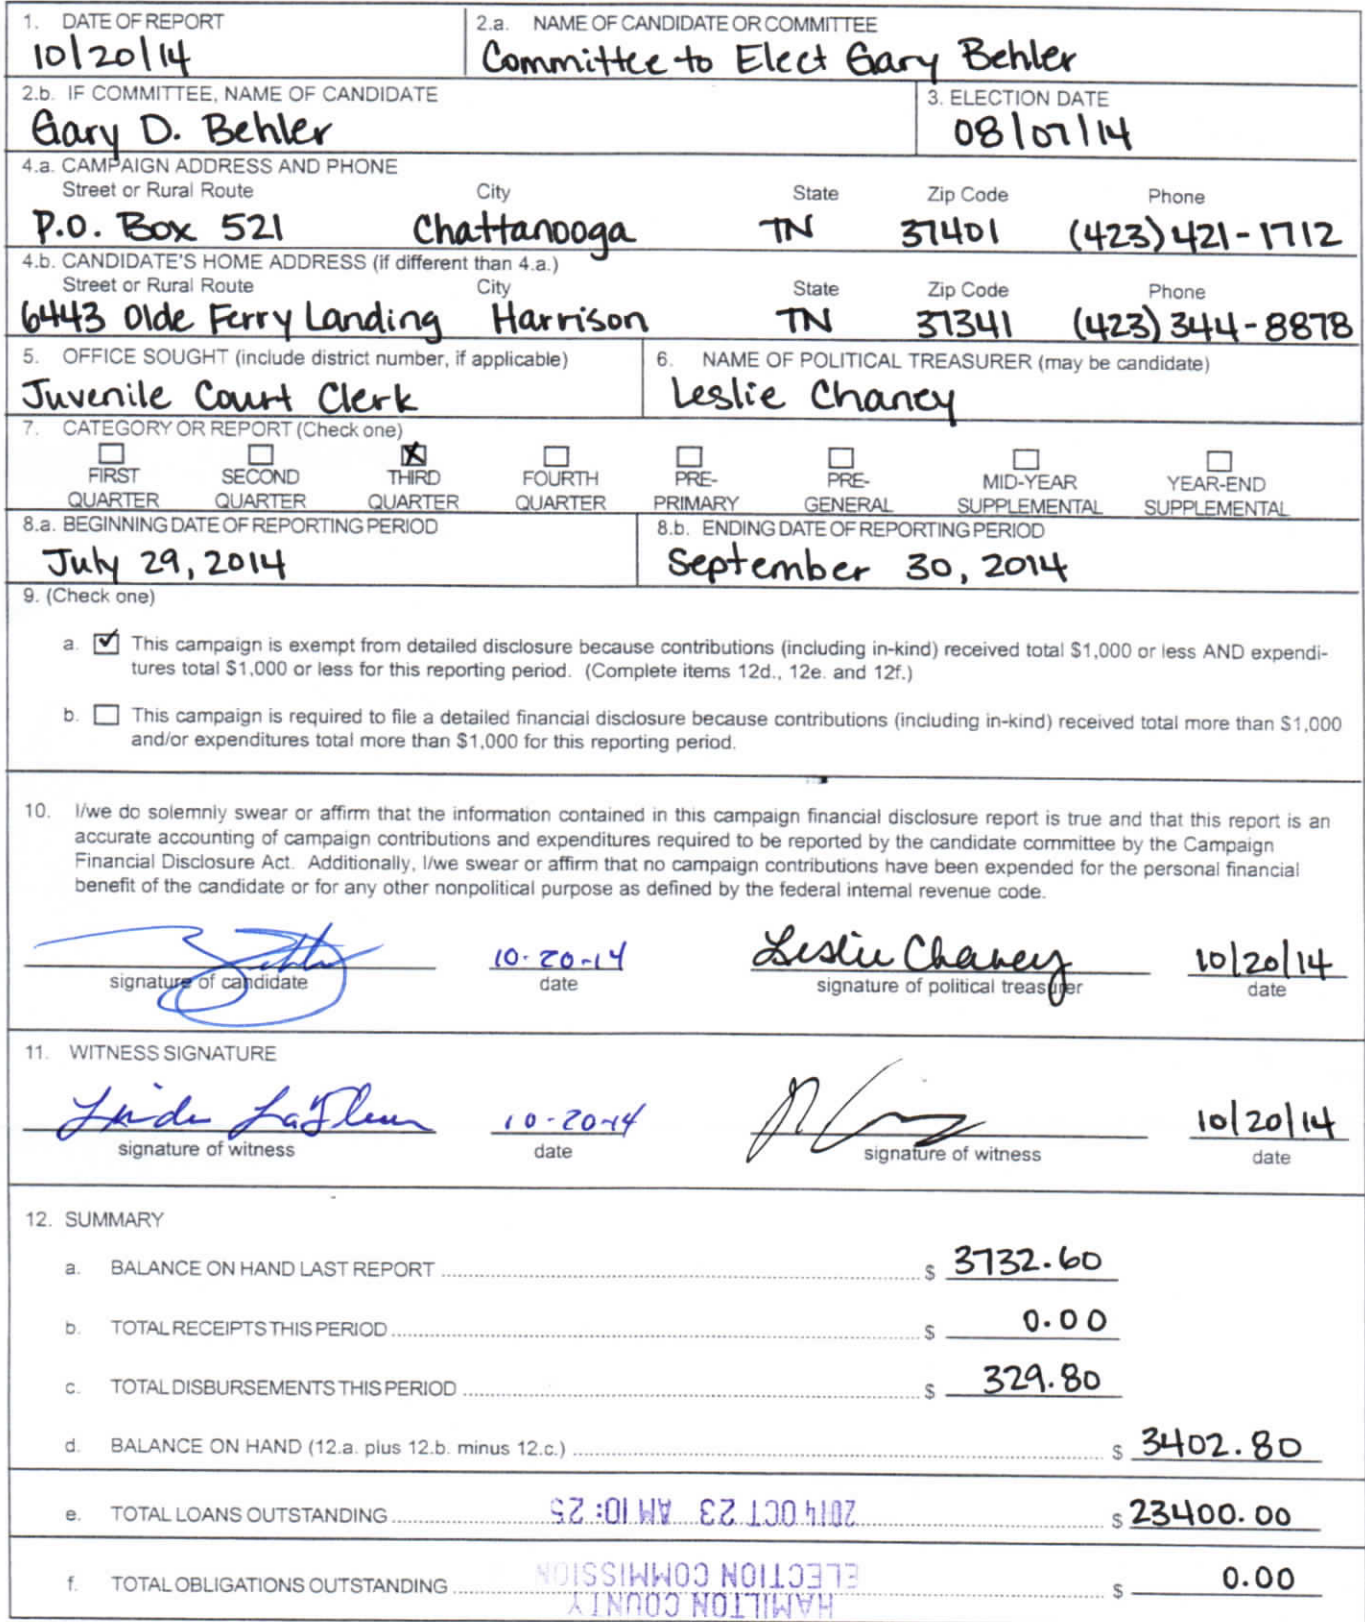 1. DATE OF REPORT
2.a. NAME OF CANDIDATE OR COMMITTEE
10/20/14
Committee to Elect Gary Behler
2.b. IF COMMITTEE, NAME OF CANDIDATE
3. ELECTION DATE
Gary D. Behler
08/07/14
4.a. CAMPAIGN ADDRESS AND PHONE
Street or Rural Route City State Zip Code Phone
P.O. Box 521 Chattanooga TN 37401 (423) 421-1712
4.b. CANDIDATE'S HOME ADDRESS (if different than 4.a.)
Street or Rural Route City State Zip Code Phone
6443 Olde Ferry Landing Harrison TN 37341 (423) 344-8878
5. OFFICE SOUGHT (include district number, if applicable)
6. NAME OF POLITICAL TREASURER (may be candidate)
Juvenile Court Clerk
Leslie Chaney
7. CATEGORY OR REPORT (Check one)
FIRST QUARTER
SECOND QUARTER
THIRD QUARTER
FOURTH QUARTER
PRE-PRIMARY
PRE-GENERAL
MID-YEAR SUPPLEMENTAL
YEAR-END SUPPLEMENTAL
8.a. BEGINNING DATE OF REPORTING PERIOD
8.b. ENDING DATE OF REPORTING PERIOD
July 29, 2014
September 30, 2014
9. (Check one)
a. This campaign is exempt from detailed disclosure because contributions (including in-kind) received total $1,000 or less AND expendi-
tures total $1,000 or less for this reporting period. (Complete items 12d., 12e. and 12f.)
b. This campaign is required to file a detailed financial disclosure because contributions (including in-kind) received total more than $1,000
and/or expenditures total more than $1,000 for this reporting period.
10. I/we do solemnly swear or affirm that the information contained in this campaign financial disclosure report is true and that this report is an
accurate accounting of campaign contributions and expenditures required to be reported by the candidate committee by the Campaign
Financial Disclosure Act. Additionally, I/we swear or affirm that no campaign contributions have been expended for the personal financial
benefit of the candidate or for any other nonpolitical purpose as defined by the federal internal revenue code.
10-20-14 Leslie Chaney 10/20/14
signature of candidate date signature of political treasurer date
11. WITNESS SIGNATURE
Linda LaFleur 10-20-14 10/20/14
signature of witness date signature of witness date
12. SUMMARY
a. BALANCE ON HAND LAST REPORT $ 3732.60
b. TOTAL RECEIPTS THIS PERIOD $ 0.00
c. TOTAL DISBURSEMENTS THIS PERIOD $ 329.80
d. BALANCE ON HAND (12.a. plus 12.b. minus 12.c.) $ 3402.80
e. TOTAL LOANS OUTSTANDING $ 23400.00
2014 OCT 23 AM 10:25
f. TOTAL OBLIGATIONS OUTSTANDING $ 0.00
HAMILTON COUNTY
ELECTION COMMISSION